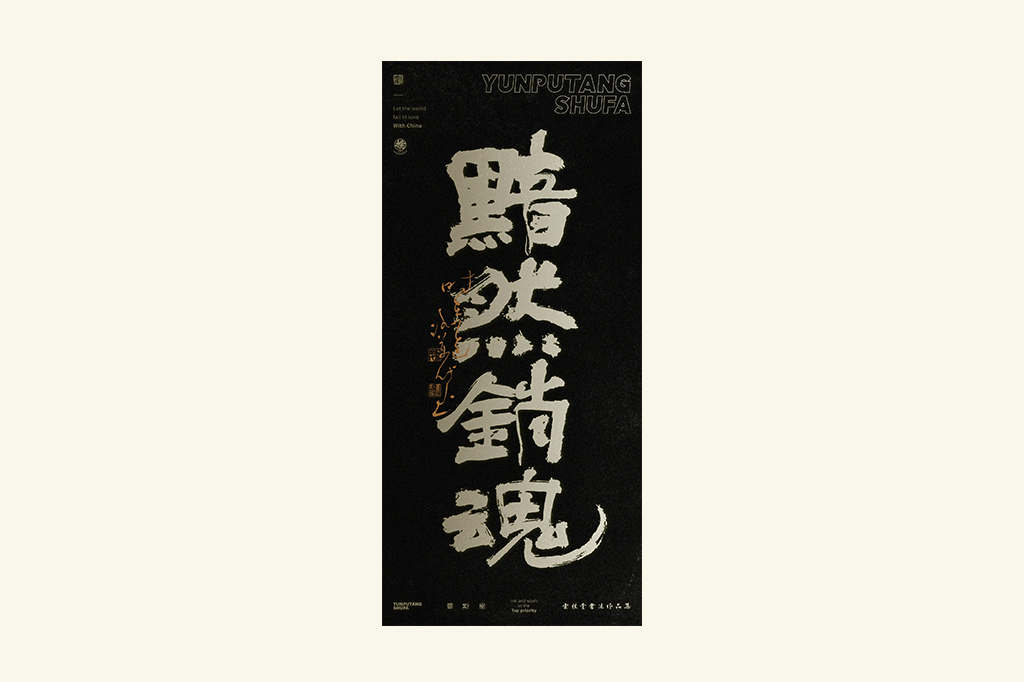 YUNPUTANG
SHUFA
Let the world
fall in love
With China
黯
然
銷
魂
YUNPUTANG
SHUFA
ink and wash
as the
Top priority
书法作品集